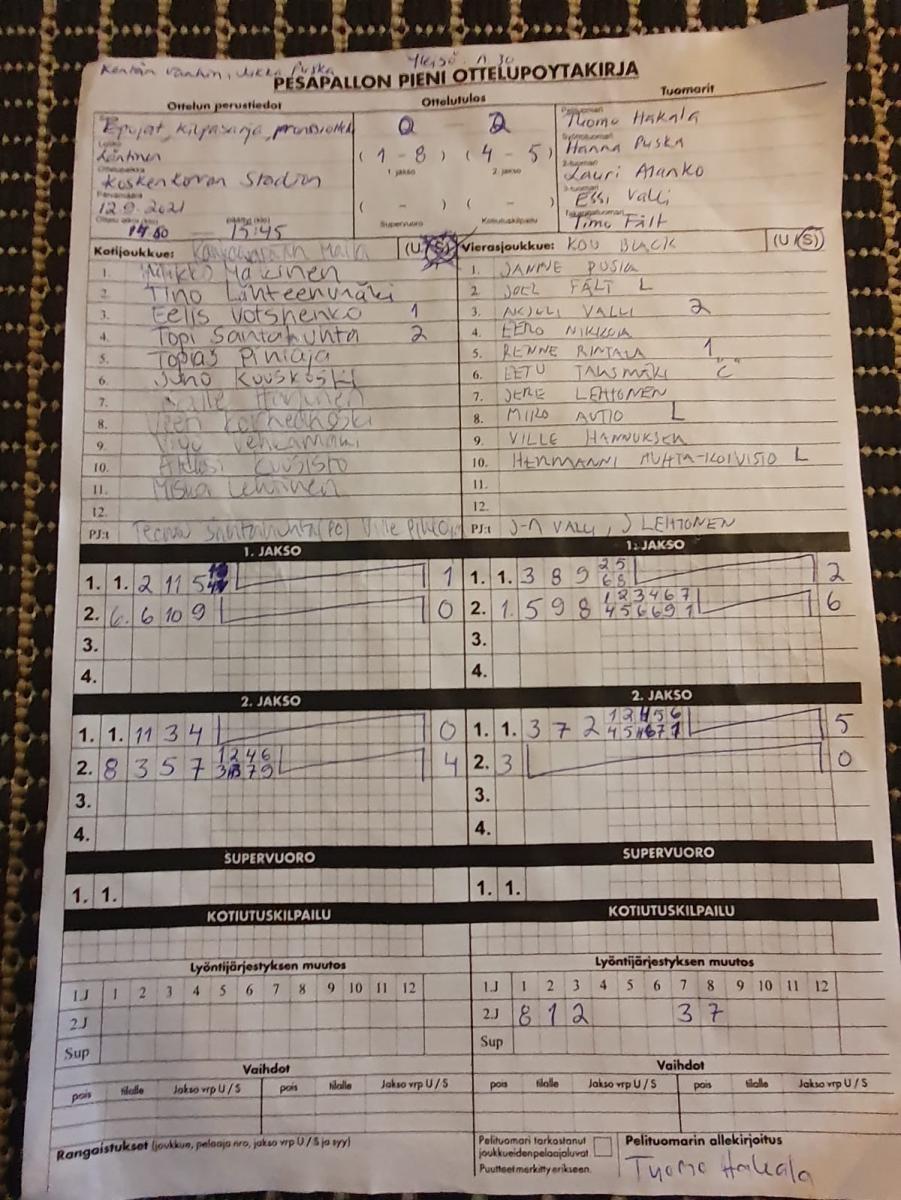 Kentän vanhin, Jukka Puska Yleisö n 30
PESÄPALLON PIENI OTTELUPÖYTÄKIRJA
Ottelun perustiedot Ottelutulos Tuomarit
Epojat, kilpasarja, pronssiottelu 0 - 2 Tuomo Hakala
Läntinen (1 - 8) (4 - 5) Hanna Puska
1 jakso 2. jakso
Koskenkorvan Stadion Lauri Ajanko
12.9.2021 ( - ) ( - ) Essi Valli
14.00 — 15:45 Supervuoro Kotiutuskilpailu Timo Fält
Kotijoukkue: Kankaanpään Maila (U/S) Vierasjoukkue: KOU BLACK (U/S)
1. Mikko Mäkinen 1. JANNE PUSKA
2. Tino Lähteenmäki 2. JOEL FÄLT L
3. Eelis Votshenko 1 3. VALLI 2
4. Topi Santahuhta 2 4. EERO
5. Topias Piniaja 5. RENNE RINTALA 1
6. Juho Kuuskoski 6. EETU TALASMÄKI C
7. 7. JERE LEHTONEN
8. 8. MIRO AUTIO L
9. Vehkamäki 9. VILLE HANNUKSEN
10. Kuusisto 10. HERMANNI HUHTA-KOIVISTO L
11. Miska Lehtinen 11.
12. 12.
PJ:t Teemu Santahuhta (PJ) Ville PJ:t J-A VALLI, J LEHTONEN
1. JAKSO 1. JAKSO
1. 1. 2 11 5 1 1. 1. 3 8 9 2 5 2
6 8
2. 6. 6 10 9 0 2. 1. 5 9 8 1 2 3 4 6 7 6
4 5 6 6 9 1
3. 3.
4. 4.
2. JAKSO 2. JAKSO
1. 1. 11 3 4 0 1. 1. 3 7 2 1 2 4 5 6 5
4 5 6 7 1
2. 8 3 5 7 1 2 4 6 4 2. 3 0
3 7 9
3. 3.
4. 4.
SUPERVUORO SUPERVUORO
1. 1. 1. 1.
KOTIUTUSKILPAILU KOTIUTUSKILPAILU
Lyöntijärjestyksen muutos Lyöntijärjestyksen muutos
1.J 1 2 3 4 5 6 7 8 9 10 11 12 1.J 1 2 3 4 5 6 7 8 9 10 11 12
2.J 2.J 8 1 2 3 7
Sup Sup
Vaihdot Vaihdot
pois tilalle Jakso vrp U / S pois tilalle Jakso vrp U / S pois tilalle Jakso vrp U / S pois tilalle Jakso vrp U / S
Rangaistukset (joukkue, pelaaja nro, jakso vrp U / S ja syy) Pelituomari tarkastanut Pelituomarin allekirjoitus
joukkueiden pelaajaluvat.
Puutteet merkitty erikseen. Tuomo Hakala